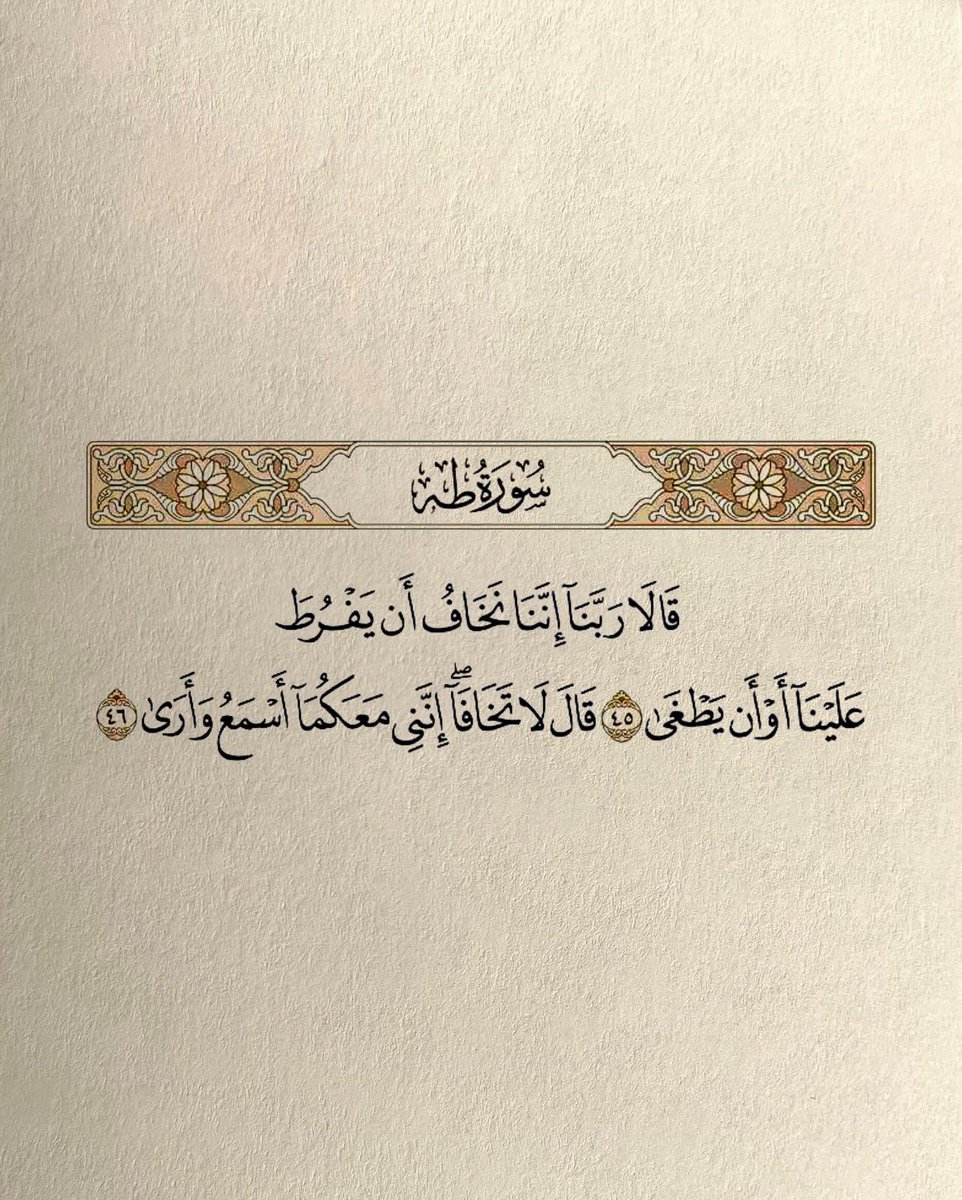 سُورَةُ طه
قَالَا رَبَّنَآ إِنَّنَا نَخَافُ أَن يَفۡرُطَ
عَلَيۡنَآ أَوۡ أَن يَطۡغَىٰ ٤٥ قَالَ لَا تَخَافَآۖ إِنَّنِي مَعَكُمَآ أَسۡمَعُ وَأَرَىٰ ٤٦